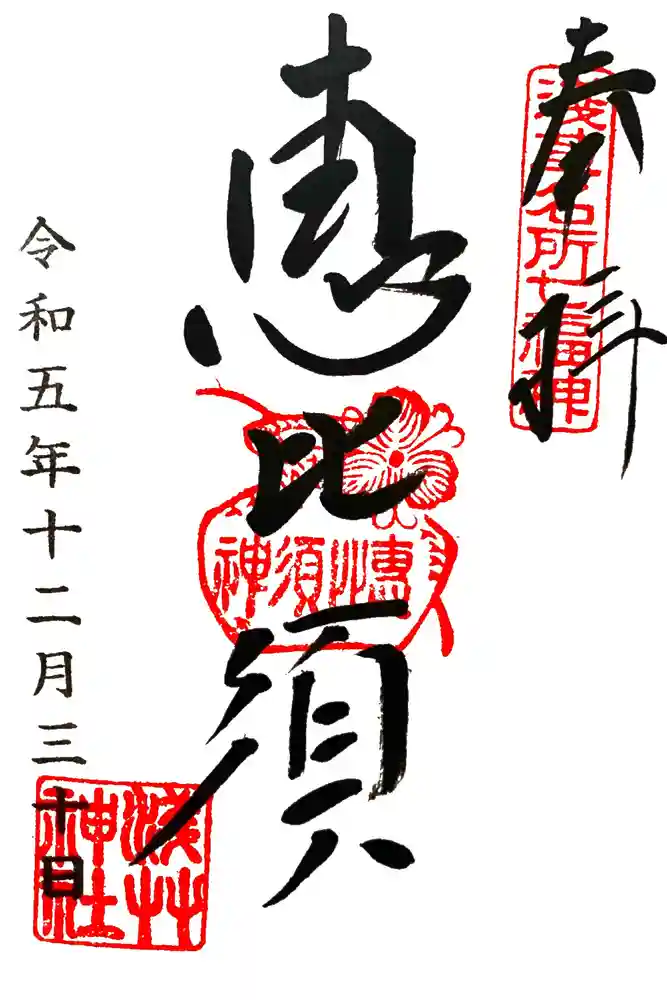 奉拝
浅草名所七福神
恵比須
惠比須神
令和五年十二月三十日
淺草神社